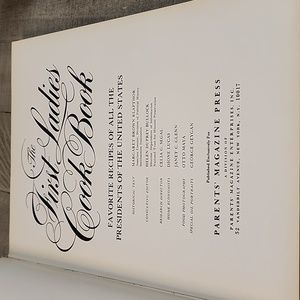 The
First Ladies
Cook Book
FAVORITE RECIPES OF ALL THE
PRESIDENTS OF THE UNITED STATES
HISTORICAL TEXT MARGARET BROWN KLAPTHOR
CONSULTING EDITOR HELEN DUPREY BULLOCK
RESEARCH EDITOR CELIA G. SEGAL
HOME ECONOMISTS DIONE LUCAS
JANET C. GLENN
FOOD PHOTOGRAPHY OTTO MAYA
SPECIAL OIL PORTRAITS GEORGE GEYGAN
Published Exclusively For
PARENTS' MAGAZINE PRESS
A DIVISION OF
PARENTS' MAGAZINE ENTERPRISES, INC.
52 VANDERBILT AVENUE, NEW YORK, N.Y. 10017